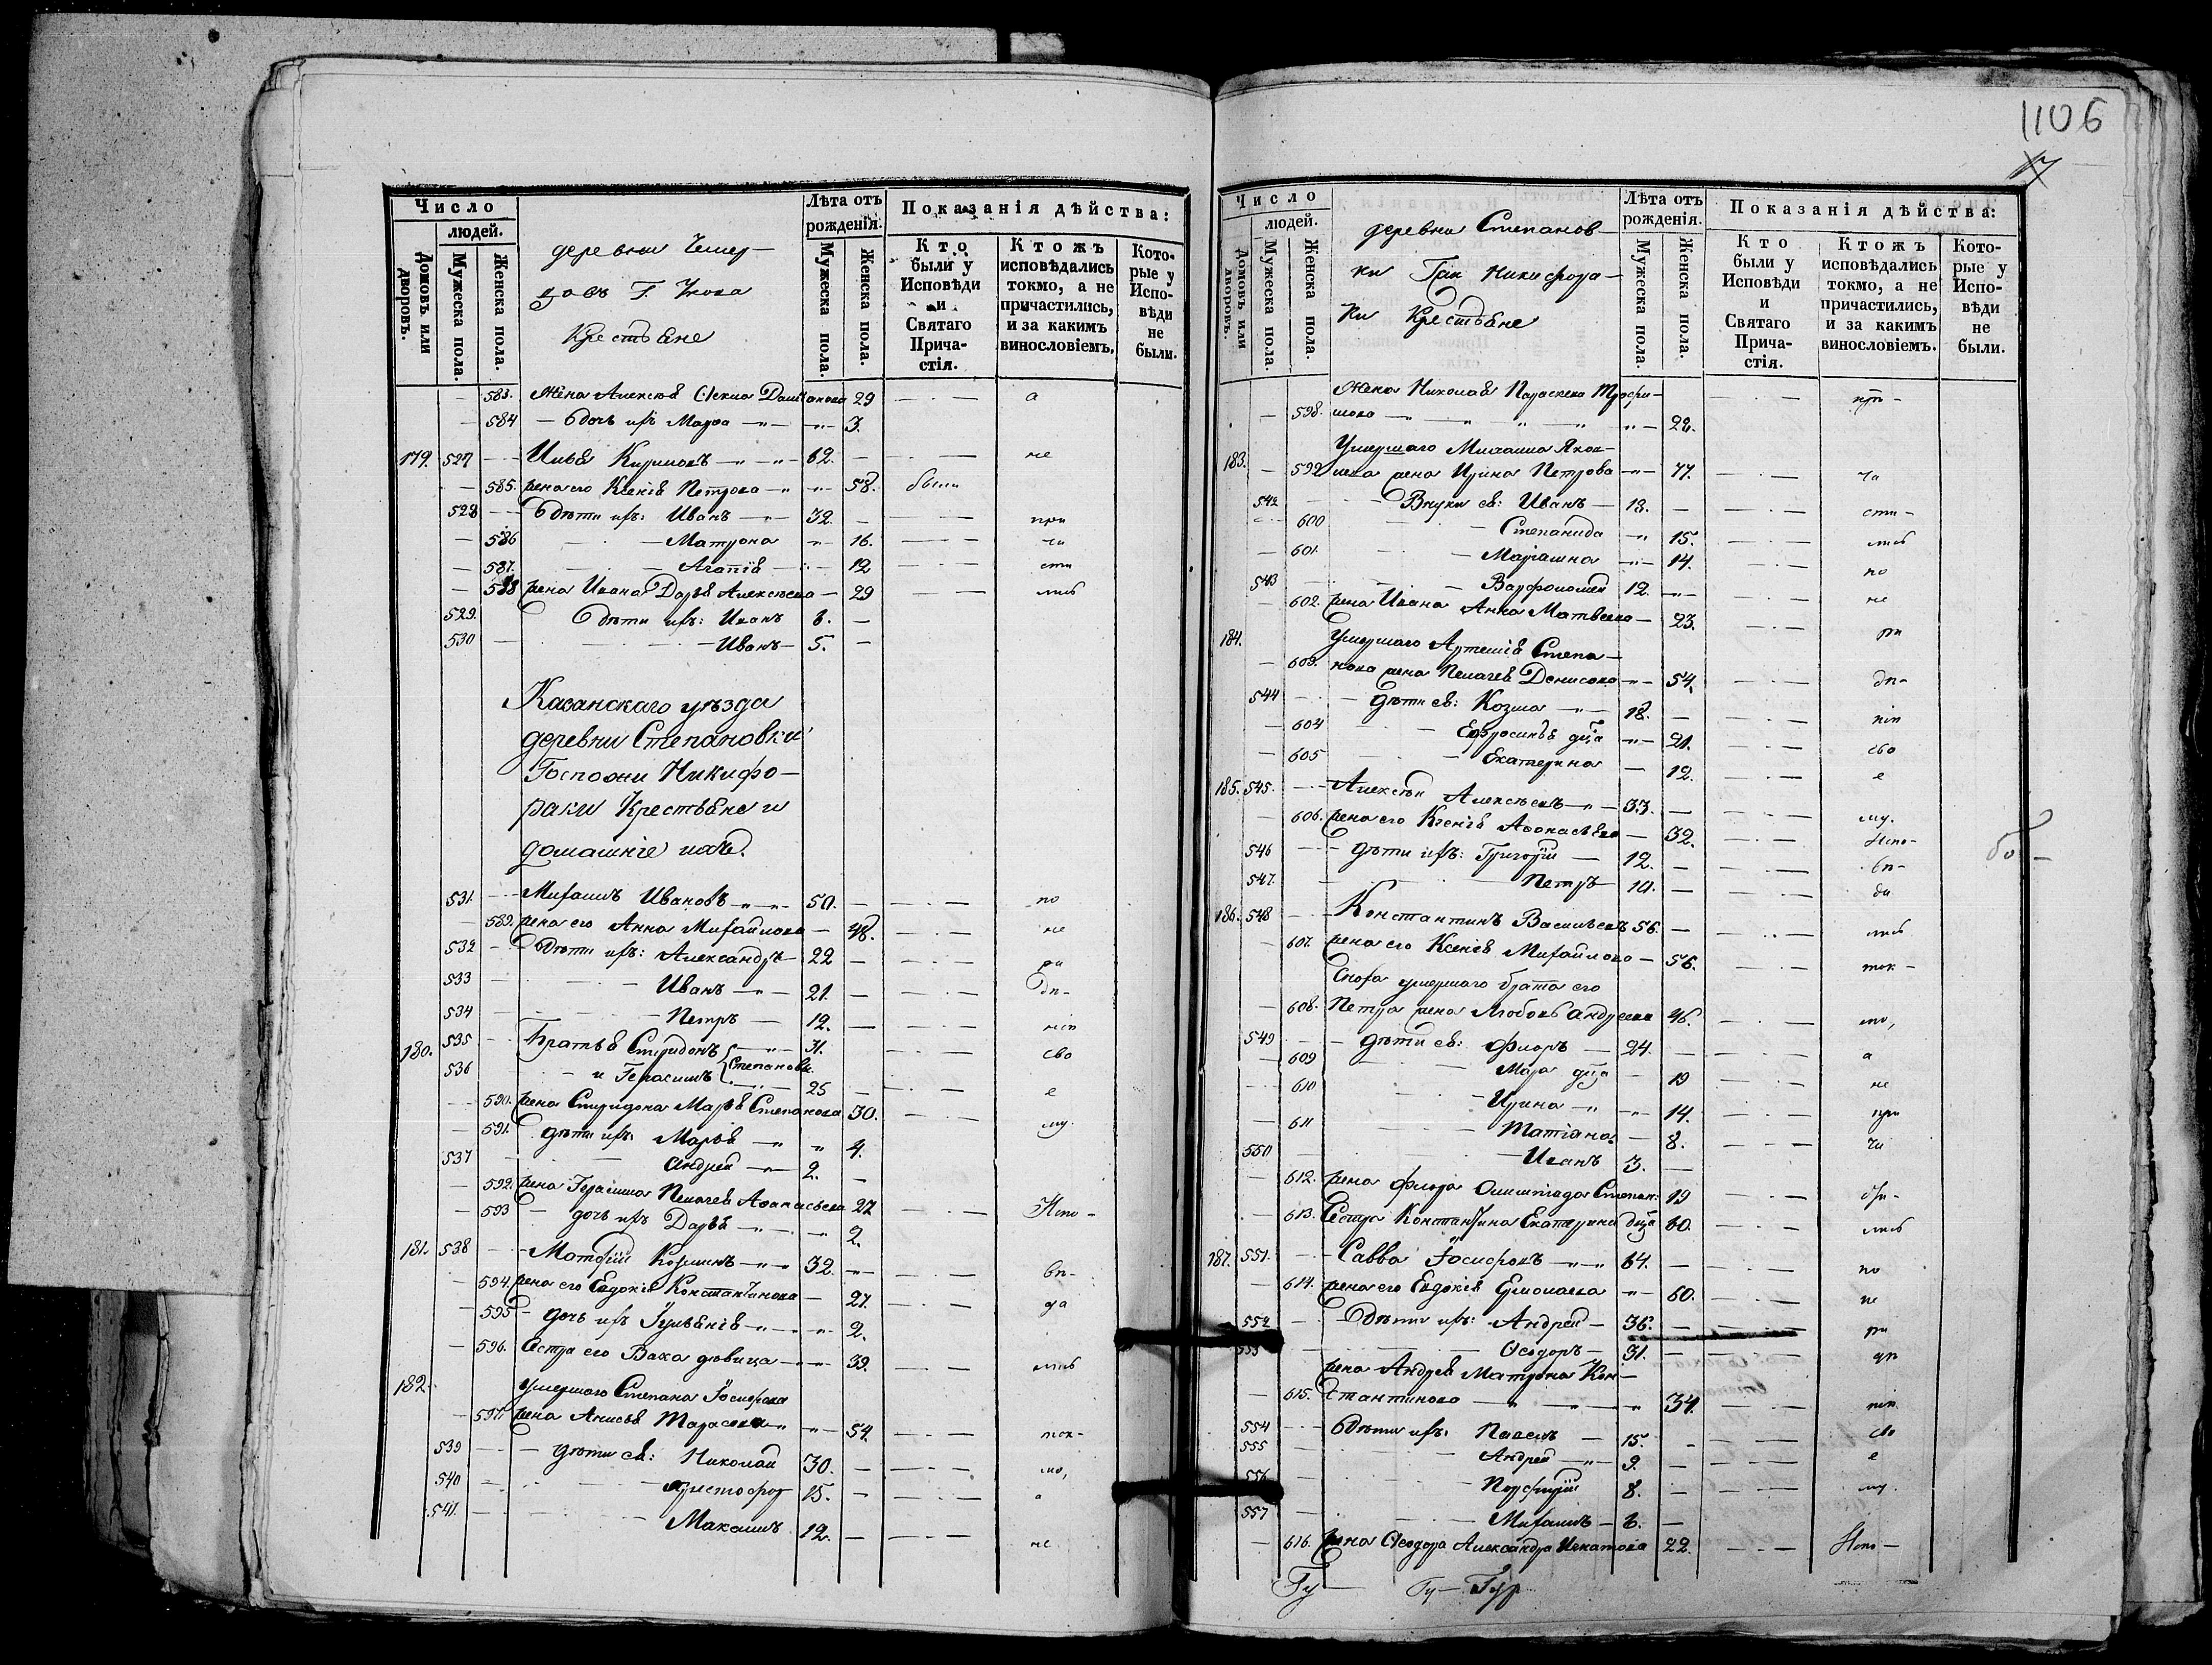 1106
17
Число
людей.
Домовъ или дворовъ.
Мужеска пола.
Женска пола.
деревни
Крестьяне
Лѣта отъ рожденія.
Мужеска пола.
Женска пола.
Показанія дѣйства:
Кто были у Исповѣди и Святаго Причастія.
Ктожъ исповѣдались токмо, а не причастились, и за какимъ винословіемъ.
Которые у Исповѣди не были.
583. Жена Алексѣя Ѳекла 29 а
584 дочь ихъ Марѳа 3.
179. 527 Илья Кириловъ 62. не
585. жена его Ксенія Петрова 58. были
528 дѣти ихъ: Иванъ 32. при
586 Матрона 16. ча
587. Агапія 12 сти
588 жена Ивана Дарья Алексѣева 29 лись
529. дѣти ихъ: Иванъ 8.
530 Иванъ 5.
Казанскаго уѣзда
деревни Степановки
Госпожи Никифо-
раки Крестьяне и
домашніе ихъ.
531. Михаилъ Ивановъ 50. по
589. жена его Анна Михайлова 48. не
532 дѣти ихъ: Александръ 22 ра
533 Иванъ 21. дѣ-
534 Петръ 12. нію
180. 535 Братья Спиридонъ Степановы 31. сво
536 и Герасимъ 25 е
590. жена Спиридона Марья Степанова 30. му.
591. дѣти ихъ: Марья 4.
537 Андрей 2.
592. жена Герасима Пелагея Аѳанасьева 27 Испо-
593 дочь ихъ Дарья 2.
181. 538 Матѳій Козминъ 32. вѣ-
594. жена его Евдокія Константинова 27. да
595 дочь ихъ Іуліанія 2.
596. Сестра его Васса дѣвица 39. лись
182. умершаго Степана Іосифова
597 жена Анисья Тарасова 54. ток-
539 дѣти ея: Николай 30. мо,
540 Христофор 15. а
541. Максимъ 12. не
Число
людей.
Домовъ или дворовъ.
Мужеска пола.
Женска пола.
деревни Степанов-
ки Гжи Никифора-
ки Крестьяне
Лѣта отъ рожденія.
Мужеска пола.
Женска пола.
Показанія дѣйства:
Кто были у Исповѣди и Святаго Причастія.
Ктожъ исповѣдались токмо, а не причастились, и за какимъ винословіемъ.
Которые у Исповѣди не были.
Жена Николая Параскева Трофи- при-
598. мова 28.
183. Умершаго Михаила Яков-
599 лева жена Ирина Петрова 77. ча
542 Внуки ея: Иванъ 18. сти-
600 Степанида 15. лись
601. Маріамна 14. по
543 Варфоломей 12. не
602. жена Ивана Анна Матвеева 23. ра
184. Умершаго Артемія Степа-
603. нова жена Пелагея Денисова 54. дѣ-
544 дѣти ея: Козма 18. нію
604 Ефросинья дца 21. сво
605 Екатерина 12. е
185. 545. Алексѣй Алексѣевъ 33. му.
606. жена его Ксенія Аѳанасьева 32. Испо-
546 дѣти ихъ: Григорій 12. вѣ-
547. Петръ 10. да
186. 548 Константинъ Васильевъ 56. лись
607. жена его Ксенія Михайлова 56. ток-
Сноха умершаго брата его
608. Петра жена Любовь Андреева 46. мо,
549 дѣти ея: Флоръ 24. а
609 Мара дца 19 не
610 Ирина 14. при
611 Татіана 8. ча
550 Иванъ 3.
612. жена Флора Олимпіада Степан: 19 сти-
613. Сестра Константина Екатерина дца 60. лись
187. 551. Савва Іосифовъ 64. по
614. жена его Евдокія Ермолаева 60. не
552 дѣти ихъ: Андрей 36. ра
553 Ѳеодоръ 31. дѣ
жена Андрея Матрона Кон-
615. стантинова 34. нію
554 дѣти ихъ: Павелъ 15. сво
555 Андрей 9. е
556 Порфирій 8. му.
557 Михаилъ 6.
616. жена Ѳеодора Александра Игнатова 22. Испо-